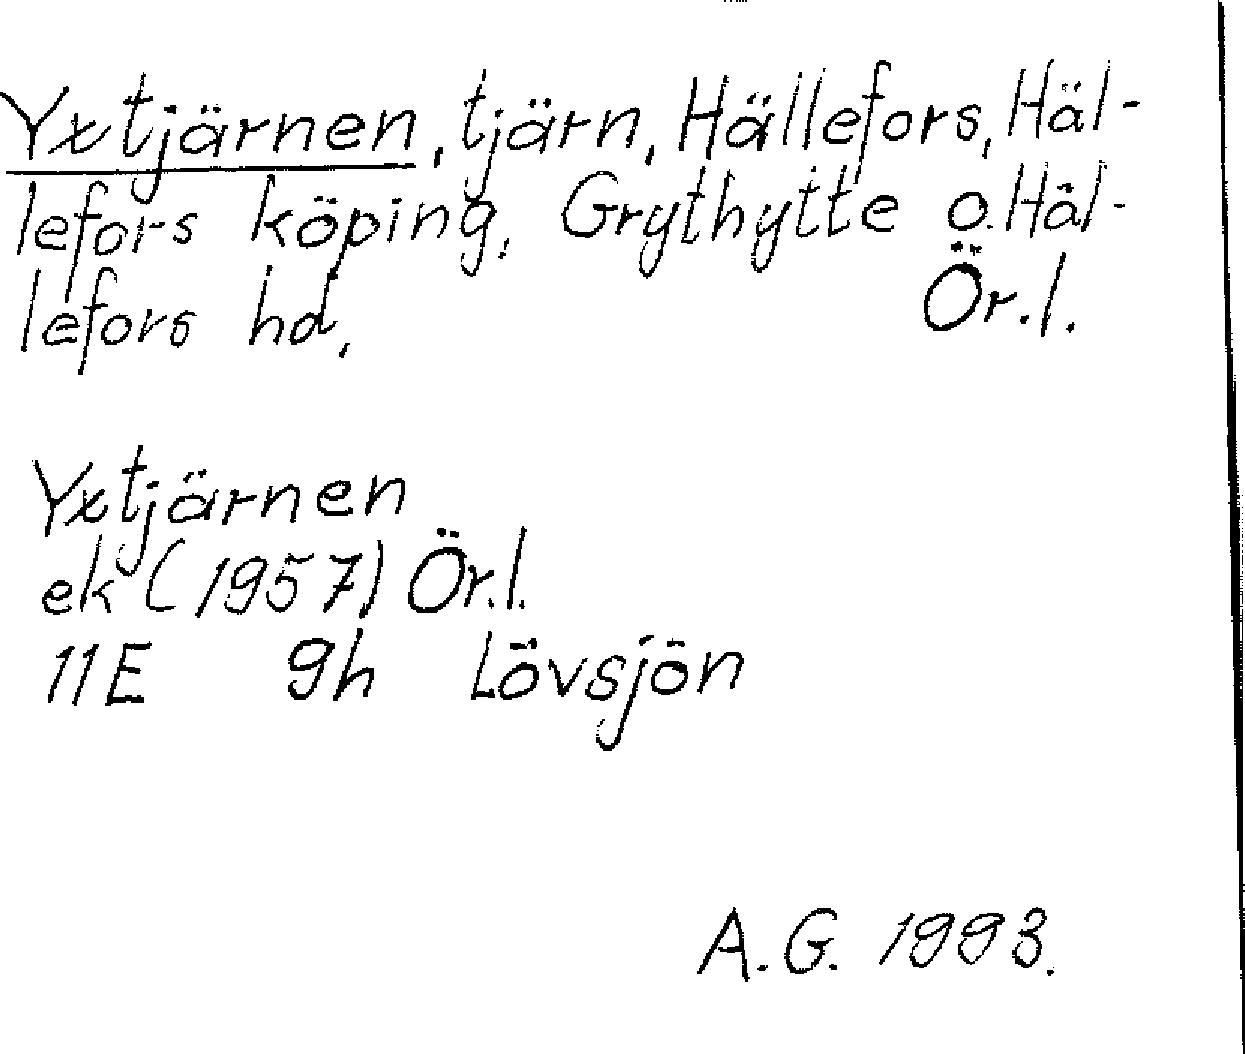 Yxtjärnen, tjärn, Hällefors, Häl-
lefors köping, Grythytte o. Häl-
lefors hd,
Ör.l.
Yxtjärnen
ek (1957) Ör.l.
11E 9h Lövsjön
A.G. 1993.